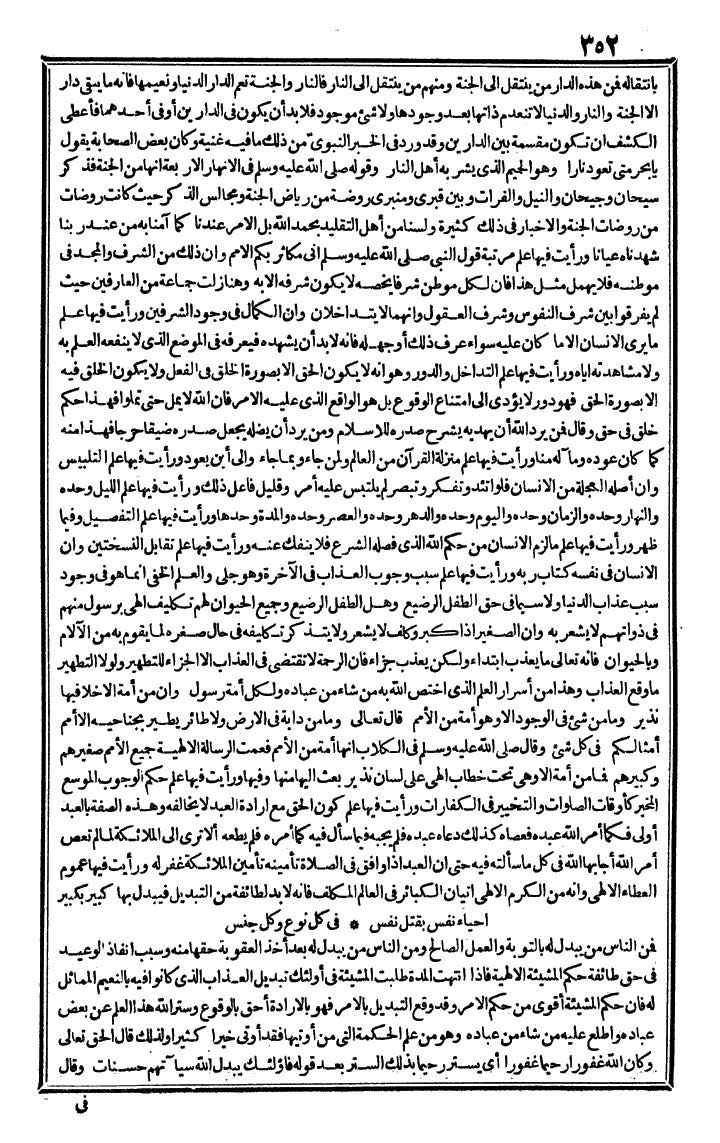 ٣٥٢
بانتقاله فمن هذه الدار من ينتقل الى الجنة ومنهم من ينتقل الى النار فالنار والجنة تعم الدار الدنيا ونعيمها فانه ما يبقى دار
الا الجنة والنار والدنيا لا تنعدم ذاتها بعد وجودها ولا شئ موجود فلا بد أن يكون فى الدارين أو فى أحدهما فأعطى
الكشف ان تكون مقسمة بين الدارين وقد ورد فى الخبر النبوى من ذلك ما فيه غنية وكان بعض الصحابة يقول
يا بحر متى تعود نارا وهو الحميم الذى يشربه أهل النار وقوله صلى الله عليه وسلم فى الانهار الاربعة انها من الجنة فذكر
سيحان وجيحان والنيل والفرات وبين قبرى ومنبرى روضة من رياض الجنة ومجالس الذكر حيث كانت روضات
من روضات الجنة والاخبار فى ذلك كثيرة ولسنا من أهل التقليد بحمد الله بل الامر عندنا كما آمنا به من عند ربنا
شهدناه عيانا ورأيت فيها علم مرتبة قول النبى صلى الله عليه وسلم انى مكاثر بكم الامم وان ذلك من الشرف والمجد فى
موطنه فلا يهمل مثل هذا فان لكل موطن شرفا يخصه لا يكون شرفه الا به وهنا زلت جماعة من العارفين حيث
لم يفرقوا بين شرف النفوس وشرف العقول وانهما لا يتداخلان وان الكمال فى وجود الشرفين ورأيت فيها علم
ما يرى الانسان الا ما كان عليه سواء عرف ذلك أو جهله فانه لا بد أن يشهده فيعرفه فى الموضع الذى لا ينفعه العلم به
ولا مشاهدته اياه ورأيت فيها علم التداخل والدور وهو انه لا يكون الحق الا بصورة الخلق فى الفعل ولا يكون الخلق فيه
الا بصورة الحق فهو دور لا يؤدى الى امتناع الوقوع بل هو الواقع الذى عليه الامر فان الله لا يمل حتى تملوا فهذا حكم
خلق فى حق وقال فمن يرد الله أن يهديه يشرح صدره للاسلام ومن يرد أن يضله يجعل صدره ضيقا حرجا فهذا منه
كما كان عوده وما آله منا ورأيت فيها علم منزلة القرآن من العالم ولمن جاء وبما جاء والى أين يعود ورأيت فيها علم التلبيس
وان أصله العجلة من الانسان فلو اتئد وتفكر وتبصر لم يلتبس عليه أمر وقليل فاعل ذلك ورأيت فيها علم الليل وحده
والنهار وحده والزمان وحده واليوم وحده والدهر وحده والعصر وحده والمدة وحدها ورأيت فيها علم التفصيل وفيما
ظهر ورأيت فيها علم ما لزم الانسان من حكم الله الذى فصله الشرع فلا ينفك عنه ورأيت فيها علم تقابل النسختين وان
الانسان فى نفسه كتاب ربه ورأيت فيها علم سبب وجوب العذاب فى الآخرة وهو جلى والعلم الخفى انما هو فى وجود
سبب عذاب الدنيا ولا سيما فى حق الطفل الرضيع وهل الطفل الرضيع وجميع الحيوان لهم تكليف الهى برسول منهم
فى ذواتهم لا يشعر به وان الصغير اذا كبر وكلف لا يشعر ولا يتذكر تكليفه فى حال صغره لما يقوم به من الآلام
وبالحيوان فانه تعالى ما يعذب ابتداء ولكن يعذب جزاء فان الرحمة لا تقتضى فى العذاب الا الجزاء للتطهير ولولا التطهير
ما وقع العذاب وهذا من أسرار العلم الذى اختص الله به من شاء من عباده ولكل أمة رسول وان من أمة الا خلا فيها
نذير وما من شئ فى الوجود الا وهو أمة من الأمم قال تعالى وما من دابة فى الارض ولا طائر يطير بجناحيه الا أمم
أمثالكم فى كل شئ وقال صلى الله عليه وسلم فى الكلاب انها أمة من الأمم فعمت الرسالة الالهية جميع الأمم صغيرهم
وكبيرهم فما من أمة الا وهى تحت خطاب الهى على لسان نذير بعث اليها منها وفيها ورأيت فيها علم حكم الوجوب الموسع
المخير كأوقات الصلوات والتخيير فى الكفارات ورأيت فيها علم كون الحق مع ارادة العبد لا يخالفه وهذه الصفة بالعبد
أولى فكما أمر الله عبده فعصاه كذلك دعاه عبده فلم يجبه فيما سأل فيه كما أمره فلم يطعه ألا ترى الى الملائكة لما لم تعص
أمر الله أجابها الله فى كل ما سألته فيه حتى ان العبد اذا وافق فى الصلاة تأمينه تأمين الملائكة غفر له ورأيت فيها عموم
العطاء الالهى وانه من الكرم الالهى اتيان الكبائر فى العالم المكلف فانه لا بد لطائفة من التبديل فيبدل بها كبير بكبير
احياء نفس بقتل نفس * فى كل نوع وكل جنس
فمن الناس من يبدل له بالتوبة والعمل الصالح ومن الناس من يبدل له بعد أخذ العقوبة حقها منه وسبب انفاذ الوعيد
فى حق طائفة حكم المشيئة الالهية فاذا انتهت المدة طلبت المشيئة فى أولئك تبديل العذاب الذى كانوا فيه بالنعيم المماثل
له فان حكم المشيئة أقوى من حكم الامر وقد وقع التبديل بالامر فهو بالارادة أحق بالوقوع وستر الله هذا العلم عن بعض
عباده واطلع عليه من شاء من عباده وهو من علم الحكمة التى من أوتيها فقد أوتى خيرا كثيرا ولذلك قال الحق تعالى
وكان الله غفورا رحيما غفورا أى يستر رحيما بذلك الستر بعد قوله فاؤلئك يبدل الله سيآتهم حسنات وقال
فى